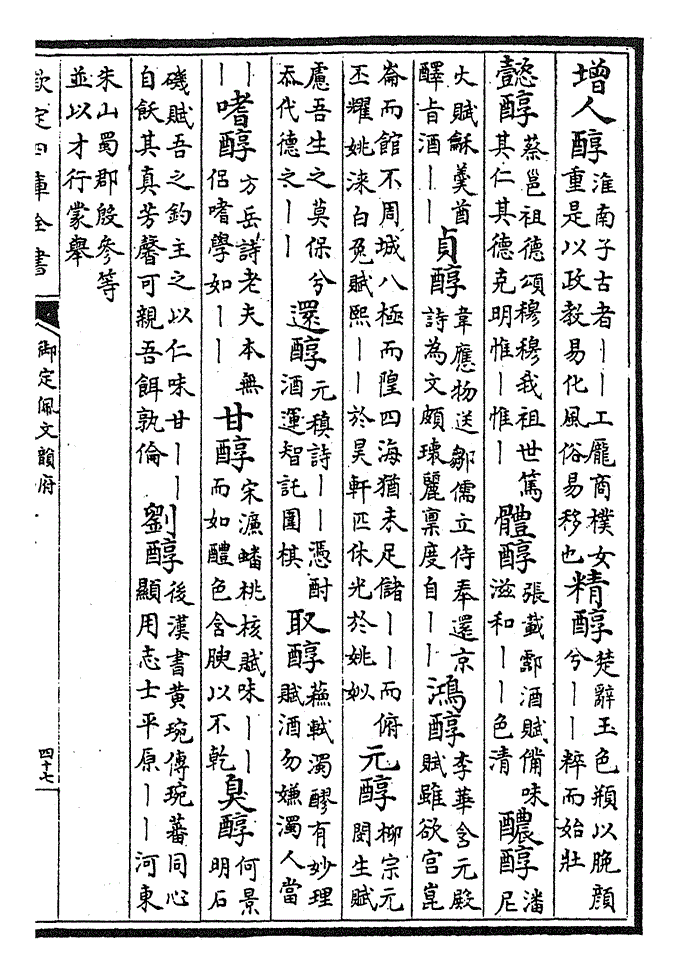 增人醇淮南子古者——工龎商樸女重是以政教易化風俗易移也精醇楚辭玉色頩以脕顔兮——粹而始壯
懿醇蔡邕祖德頌穆穆我祖世篤其仁其德克明惟—惟—體醇張載酃酒賦備味滋和——色清醲醇潘尼
火賦龢羮酋醳旨酒——貞醇韋應物送鄒儒立侍奉還京詩為文頗瑓麗禀度自——鴻醇李華含元殿賦雖欲宫崑
崙而館不周城八極而隍四海猶未足儲——而俯丕耀姚淶白兎賦熙——於昊軒匹休光於姚姒元醇柳宗元閔生賦
慮吾生之莫保兮忝代德之——還醇元稹詩——憑酎酒運智託圍棋取醇蘇軾濁醪有妙理賦酒勿嫌濁人當
——嗜醇方岳詩老夫本無侣嗜學如——甘醇宋濂蟠桃核賦味——而如醴色含腴以不乾臭醇何景明石
磯賦吾之釣主之以仁味甘——自飫其真芳馨可親吾餌孰倫劉醇後漢書黄琬傳琬蕃同心顯用志士平原——河東
朱山蜀郡殷參等並以才行蒙舉
欽定四庫全書
御定佩文韻府
四十七